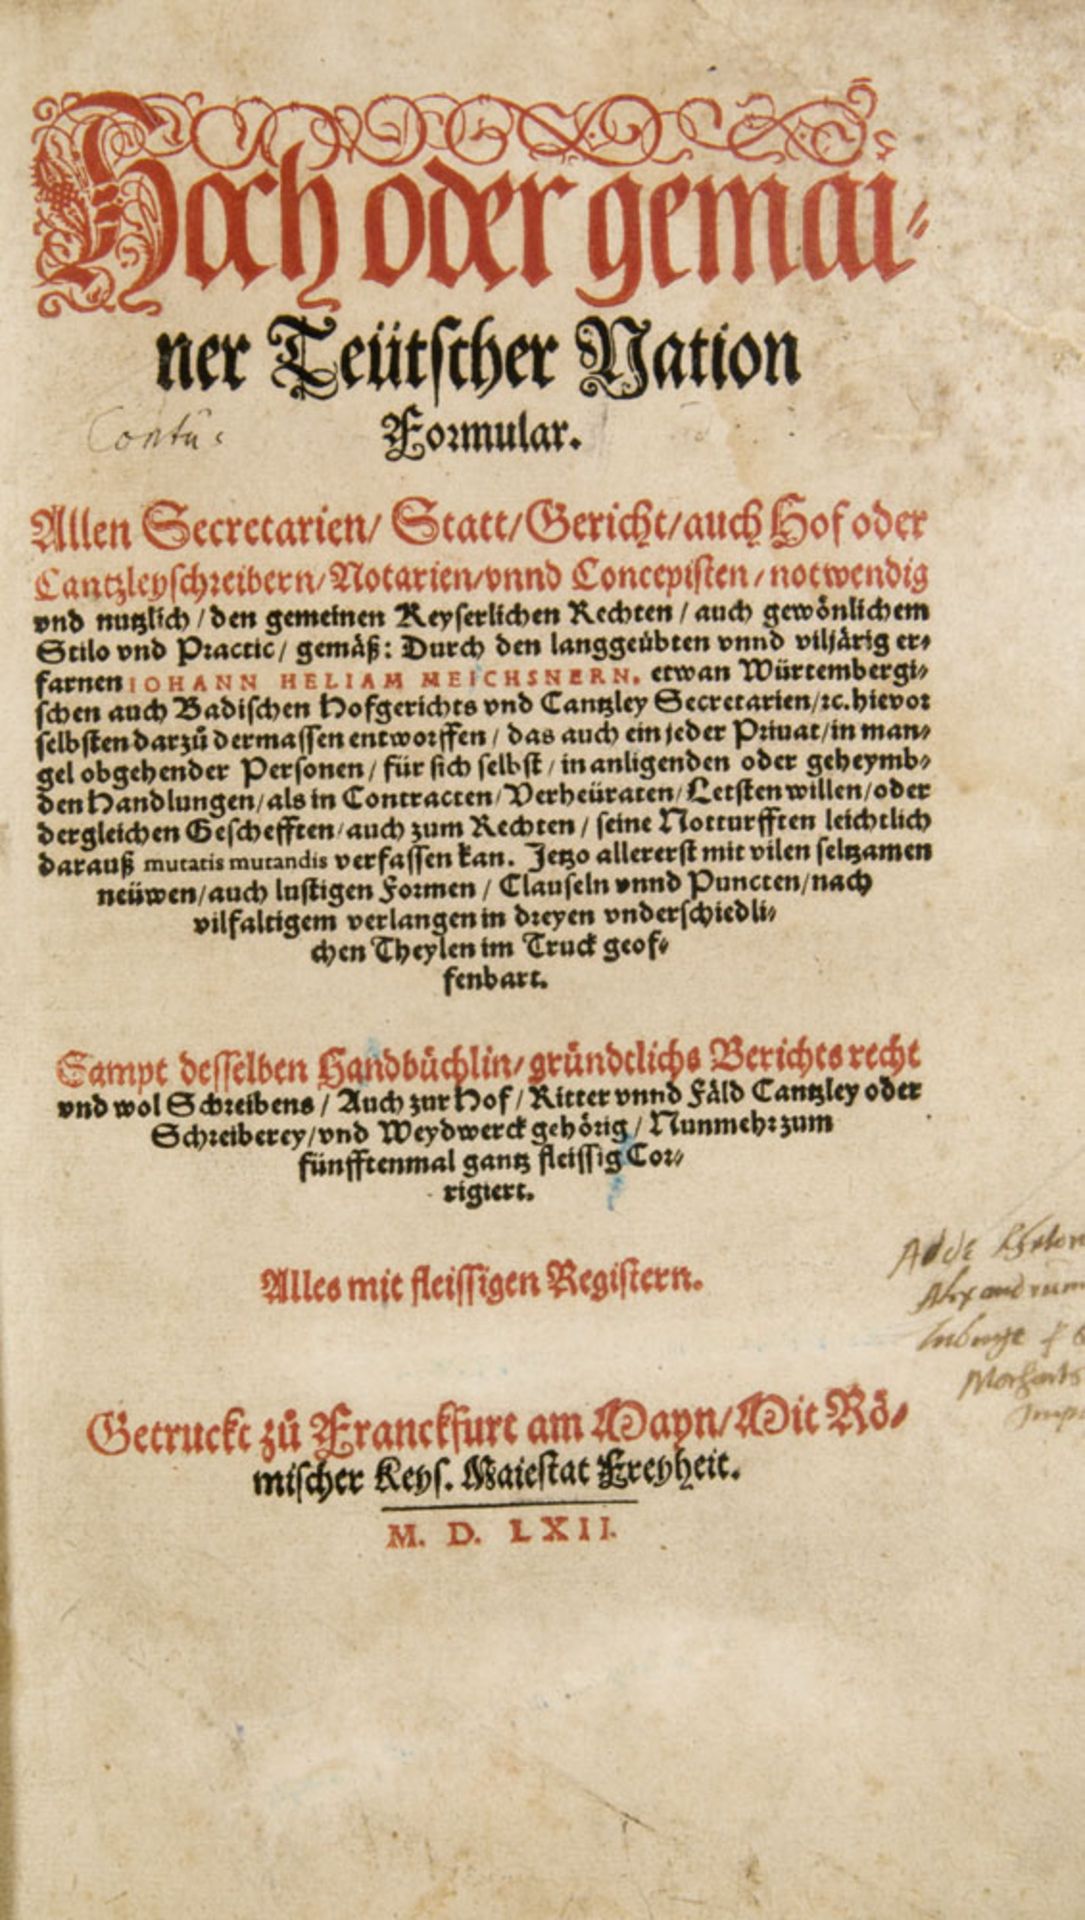 Hoch oder gemai-
ner Teütscher Nation
Formular.
Allen Secretarien/ Statt/ Gericht/ auch Hof oder
Cantzleyschreibern/ Notarien/ vnnd Concepisten/ notwendig
vnd nutzlich/ den gemeinen Keyserlichen Rechten/ auch gewönlichem
Stilo vnd Practic/ gemäß: Durch den langgeübten vnnd viljärig er-
farnen IOHANN HELIAM MEICHSNERN. etwan Würtembergi-
schen auch Badischen Hofgerichts vnd Cantzley Secretarien/ ꝛc. hievor
selbsten darzů dermassen entworffen/ das auch ein jeder Priuat/ in man-
gel obgehender Personen/ für sich selbst/ in anligenden oder geheymb-
den Handlungen/ als in Contracten/ Verheüraten/ Letsten willen/ oder
dergleichen Geschefften/ auch zum Rechten/ seine Notturfften leichtlich
darauß mutatis mutandis verfassen kan. Jetzo allererst mit vilen seltzamen
neüwen/ auch lustigen Formen/ Clauseln vnnd Puncten/ nach
vilfaltigem verlangen in dreyen vnderschiedli-
chen Theylen im Truck geof-
fenbart.
Sampt desselben Handbüchlin/ gründtlichs Berichts recht
vnd wol Schreibens/ Auch zur Hof/ Ritter vnnd Fäld Cantzley oder
Schreiberey/ vnd Weydwerck gehörig/ Nunmehr zum
fünfftenmal gantz fleissig Cor-
rigiert.
Alles mit fleissigen Registern.
Adde
Getruckt zů Franckfurt am Mayn/ Mit Rö-
mischer Keys. Maiestat Freyheit.
M. D. LXII.